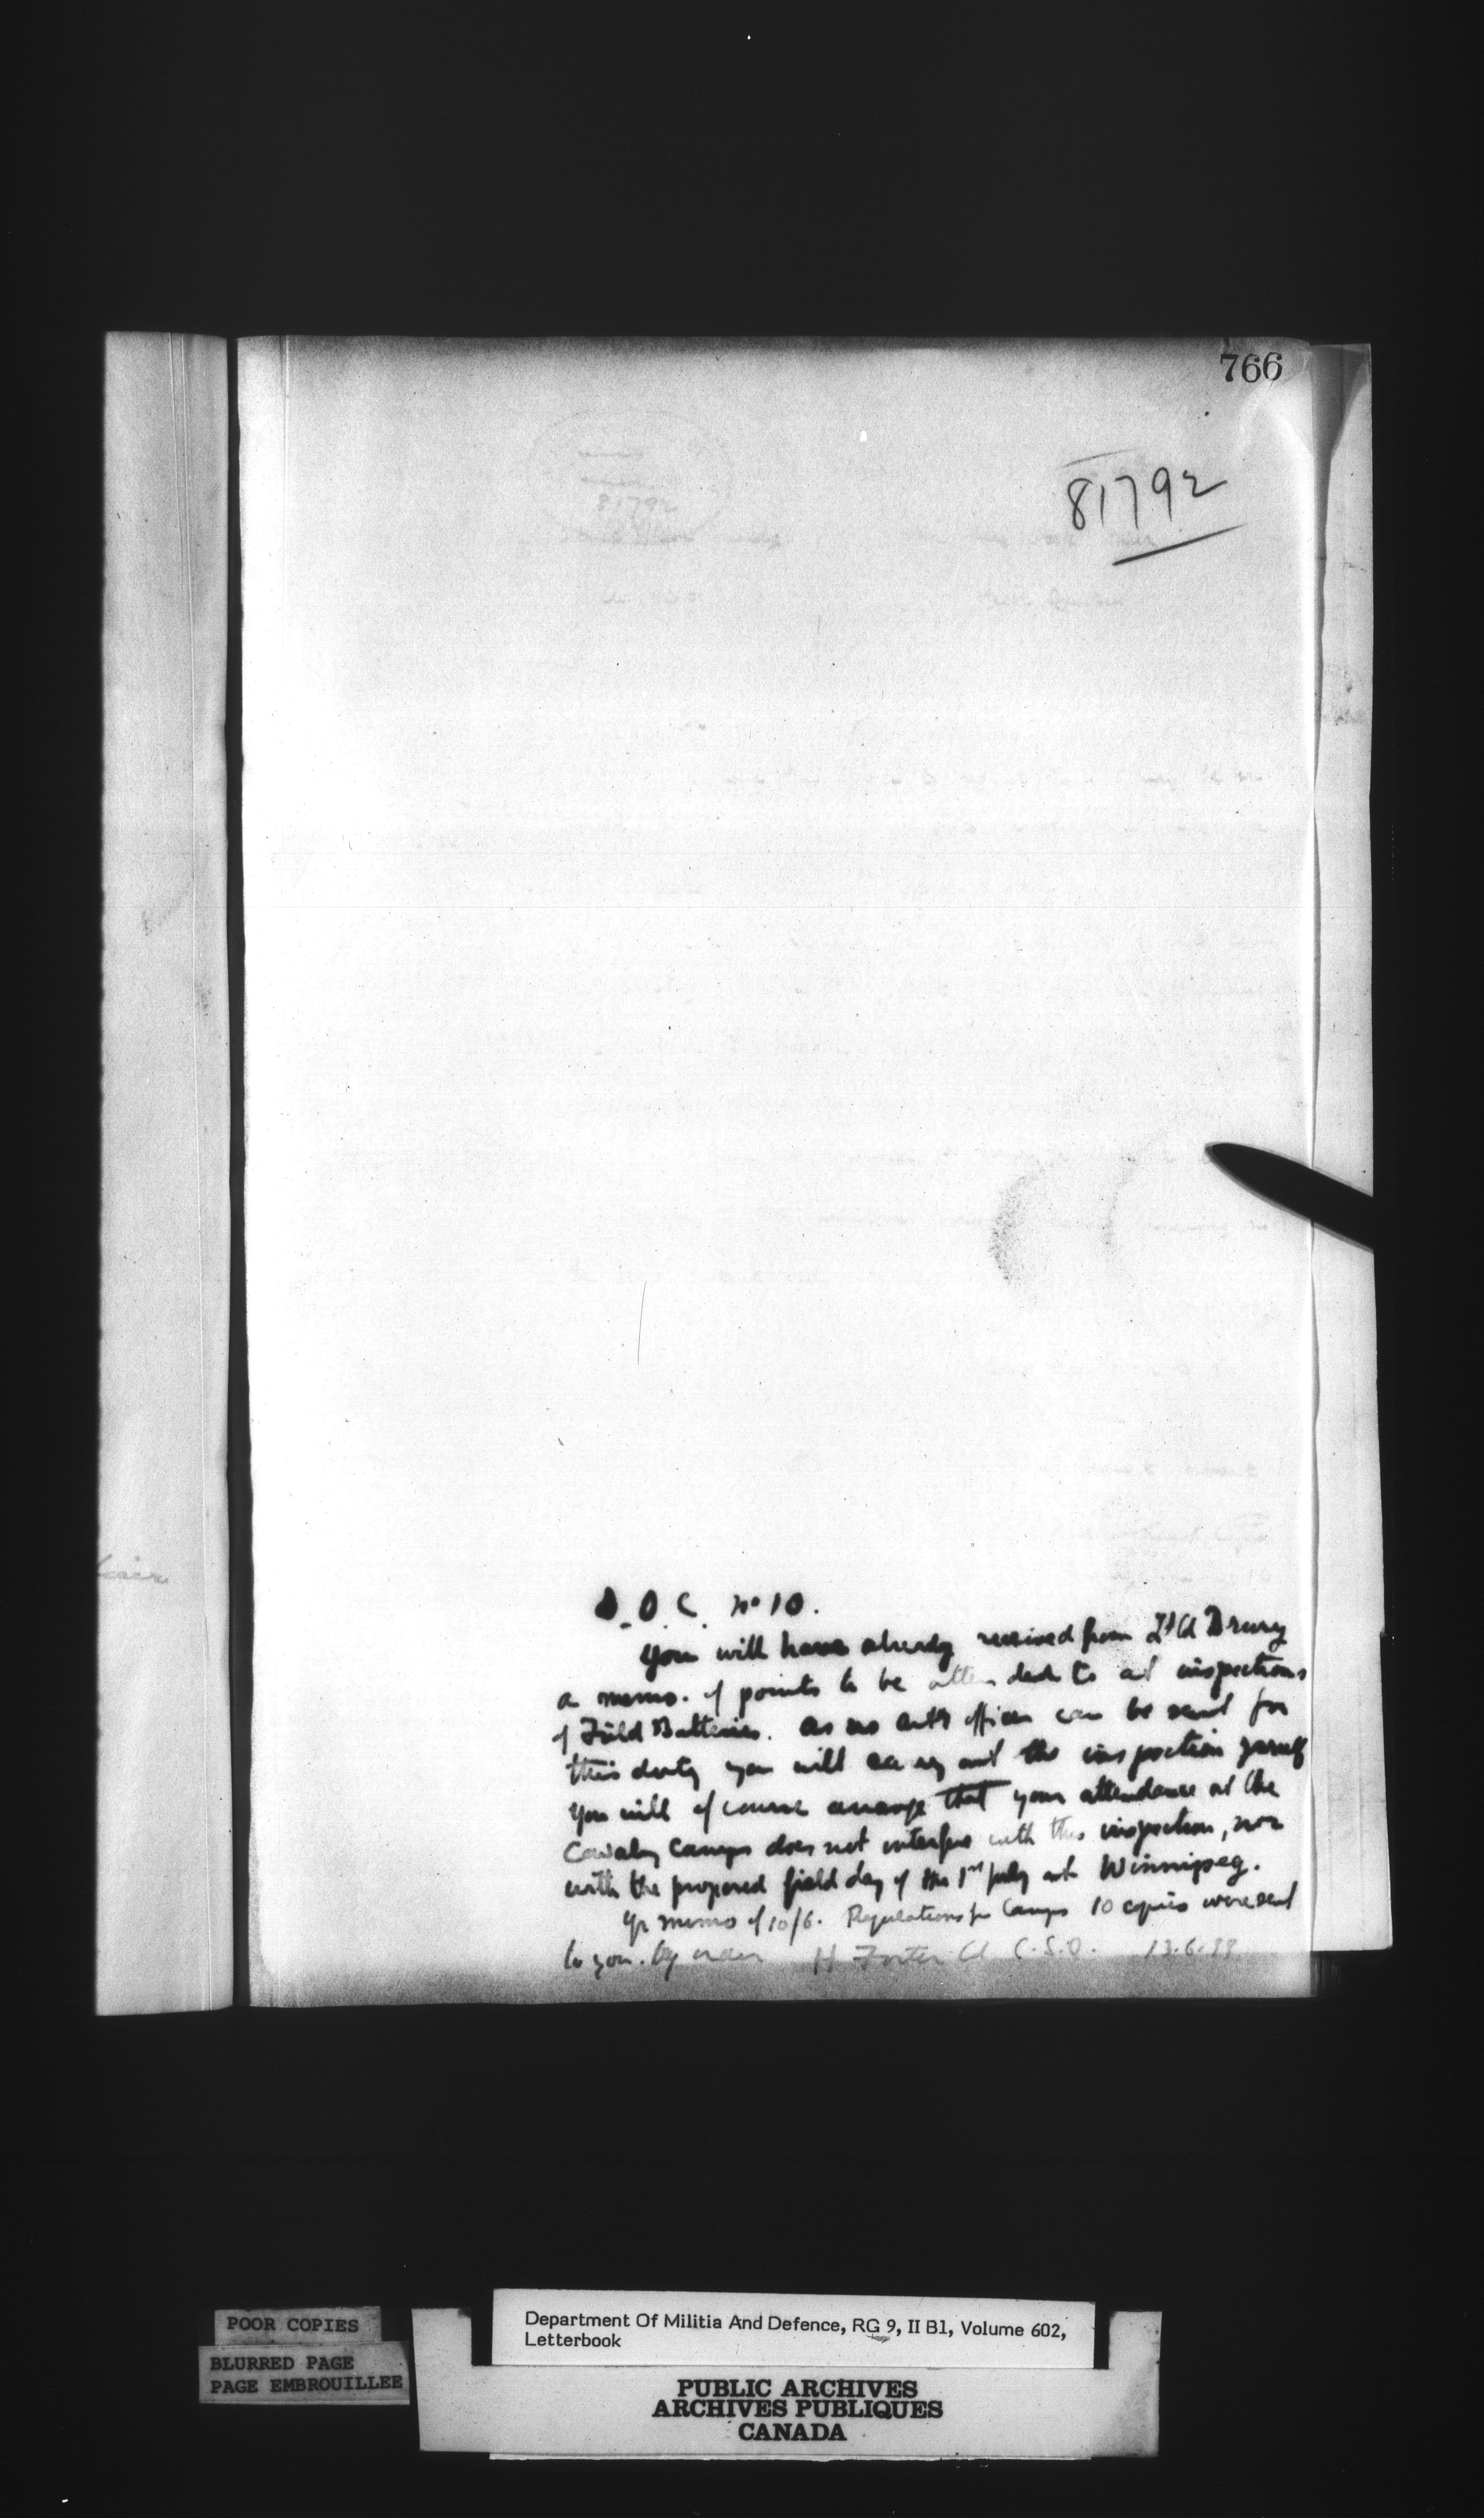 766
81792
D.O.C. No 10.
You will have already received from Lt Col Drury
a memo. of points to be attended to at inspections
of Field Batteries. As no arty officer can be sent for
this duty you will carry out the inspection yrself
You will of course arrange that your attendance at the
Cavalry Camps does not interfere with this inspection, nor
with the proposed field day of the 1st July at Winnipeg.
Yr memo of 10/6. Regulations for Camps 10 copies were sent
to you. By order H Foster Col C.S.O. 13.6.99
POOR COPIES
BLURRED PAGE
PAGE EMBROUILLEE
Department Of Militia And Defence, RG 9, II B1, Volume 602,
Letterbook
PUBLIC ARCHIVES
ARCHIVES PUBLIQUES
CANADA